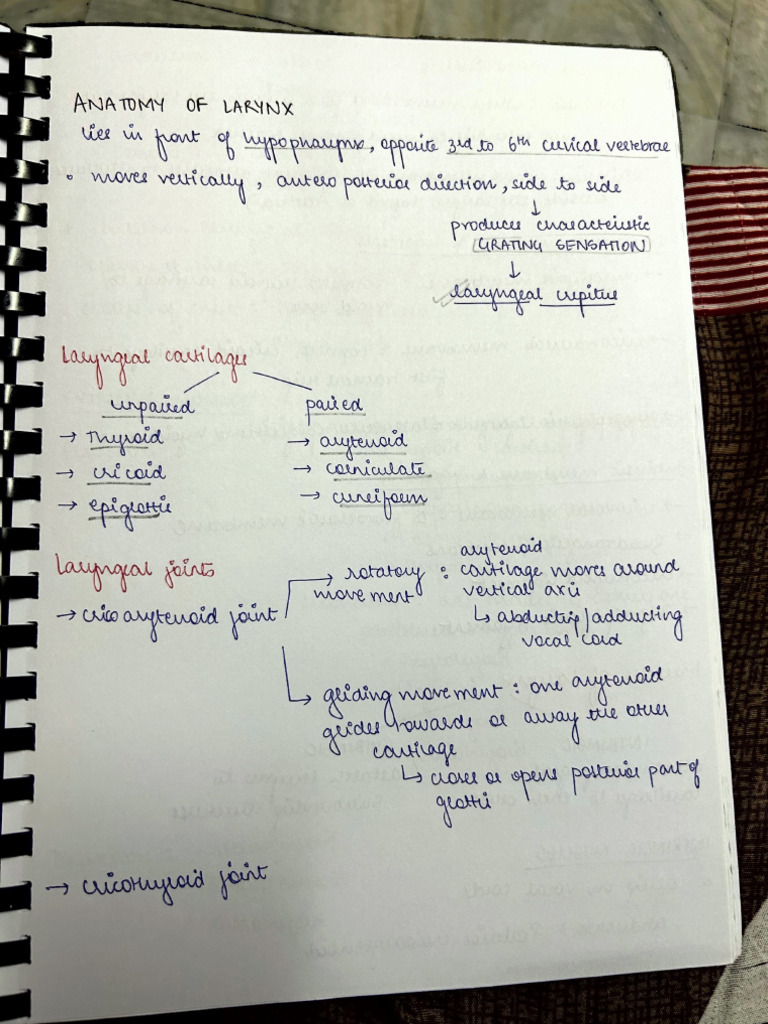 ANATOMY OF LARYNX
lies in front of hypopharynx, opposite 3rd to 6th cervical vertebrae
• moves vertically, antero posterior direction, side to side
↓
produces characteristic
GRATING SENSATION
↓
laryngeal crepitus
Laryngeal cartilages
unpaired
→ Thyroid
→ cricoid
→ epiglottis
paired
→ arytenoid
→ corniculate
→ cuneiform
Laryngeal joints
→ cricoarytenoid joint
→ rotatory movement : arytenoid
cartilage moves around
vertical axis
↳ abducting/adducting
vocal cord
→ gliding movement : one arytenoid
glides towards or away the other
cartilage
↳ closes or opens posterior part of
glottis
→ cricothyroid joint